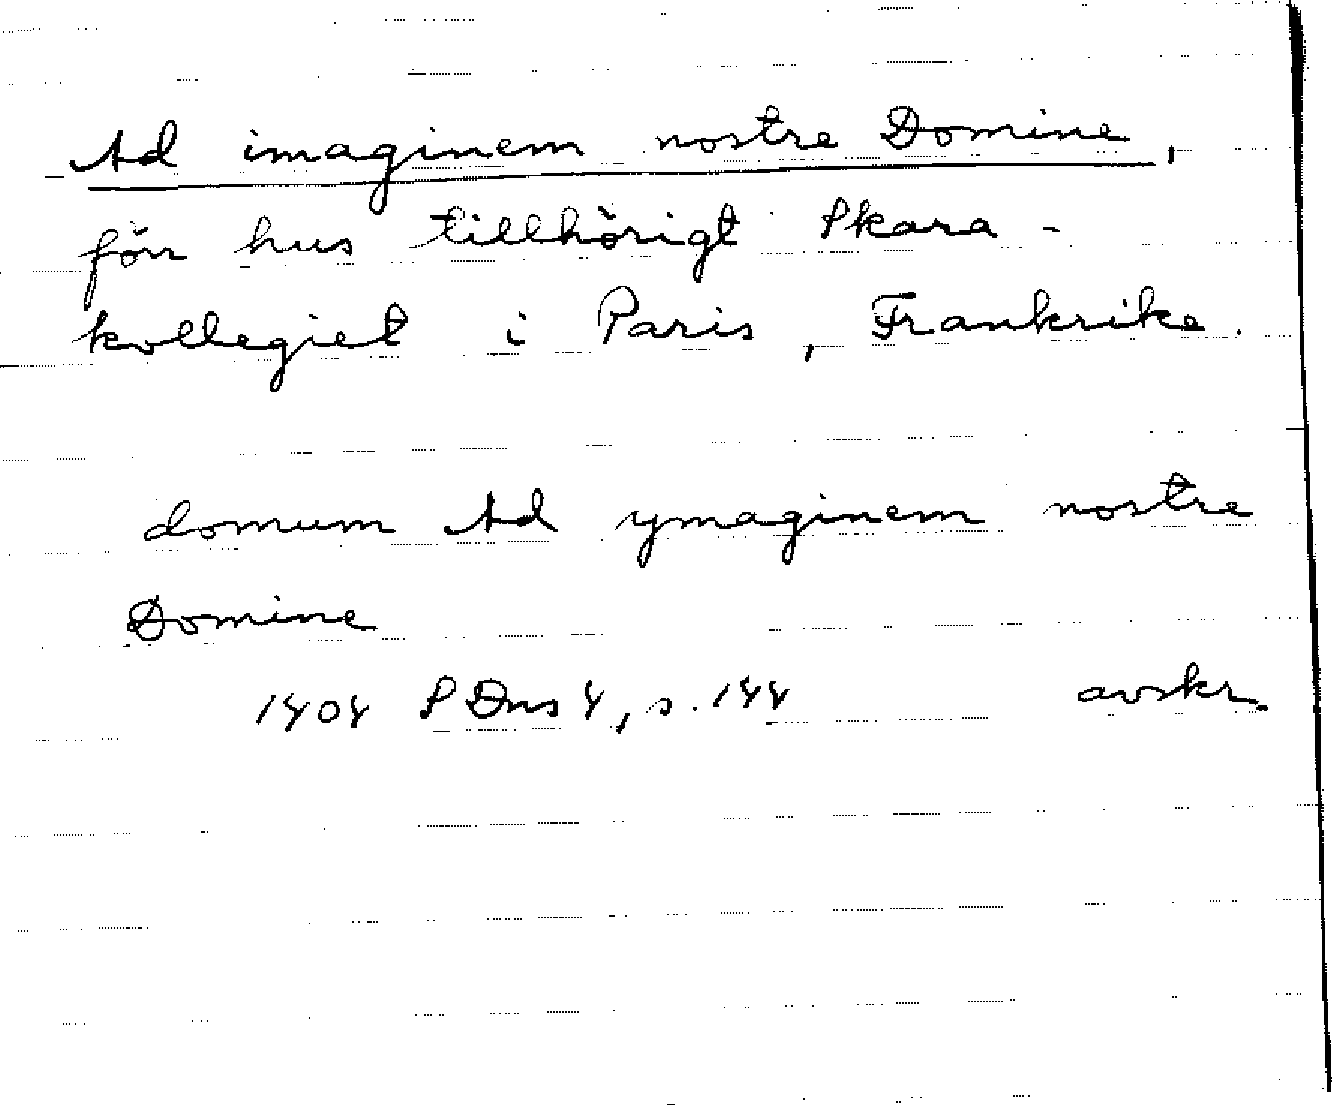 Ad imaginem nostre Domine,
för hus tillhörigt Skara-
kollegiet i Paris, Frankrike.
domum Ad ymaginem nostre
Domine
1404 SDns 4, s. 144 avskr.